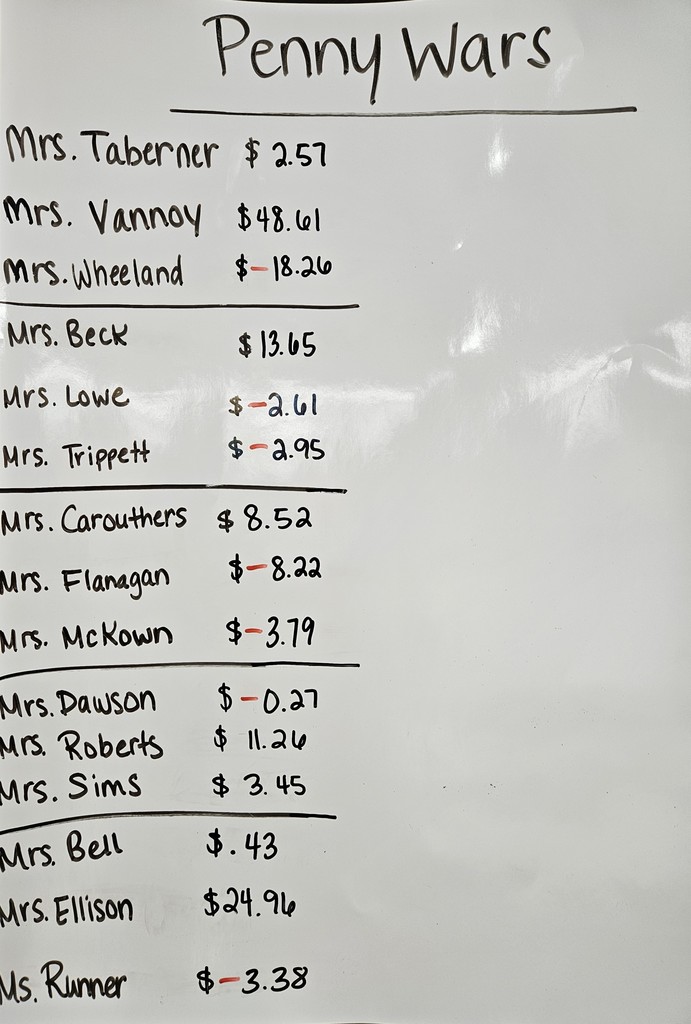 Penny Wars
Mrs. Taberner $ 2.57
Mrs. Vannoy $48.61
Mrs. Wheeland $-18.26
Mrs. Beck $13.65
Mrs. Lowe $-2.61
Mrs. Trippett $-2.95
Mrs. Carouthers $ 8.52
Mrs. Flanagan $-8.22
Mrs. McKown $-3.79
Mrs. Dawson $-0.27
Mrs. Roberts $ 11.26
Mrs. Sims $ 3.45
Mrs. Bell $.43
Mrs. Ellison $24.96
Ms. Runner $-3.38